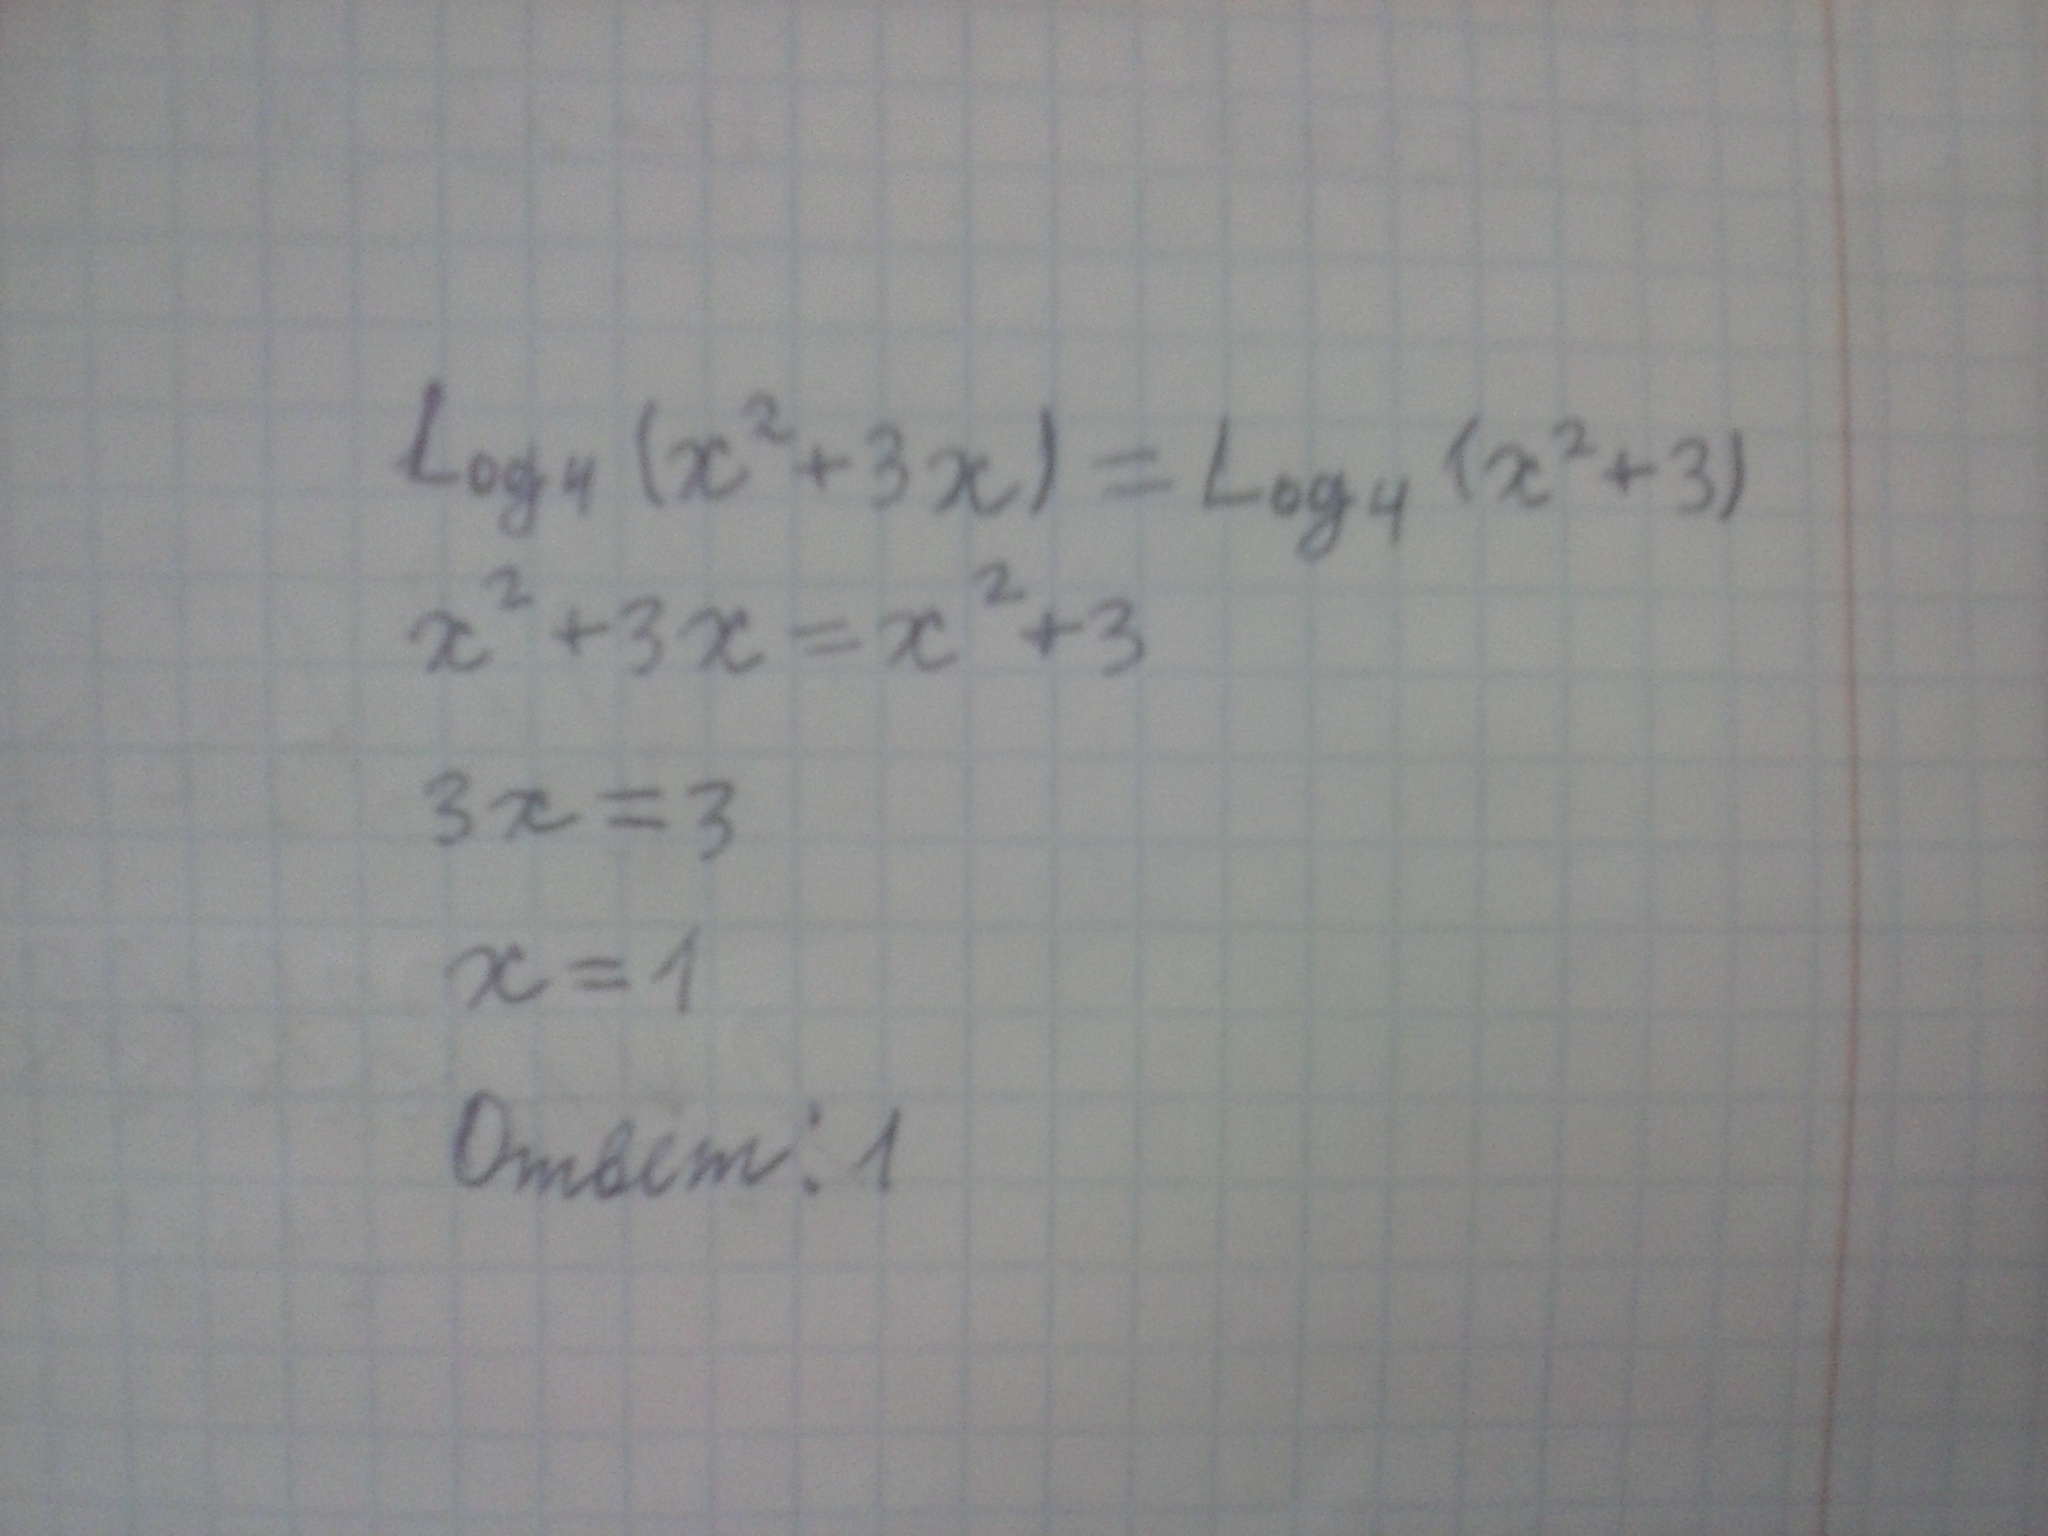 Log₄ (x² + 3x) = Log₄ (x² + 3)
x² + 3x = x² + 3
3x = 3
x = 1
Ответ: 1